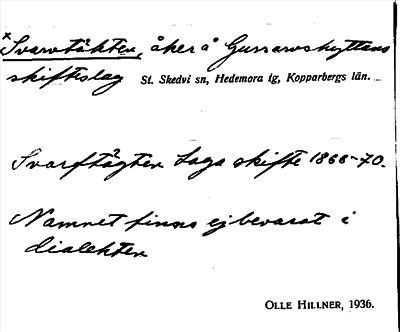 x Svarvtäkten, åker å Gussarvshyttans
skifteslag St. Skedvi sn, Hedemora tg, Kopparbergs län.
Svarftägten Laga skifte 1866-70.
Namnet finns ej bevarat i
dialekten
OLLE HILLNER, 1936.